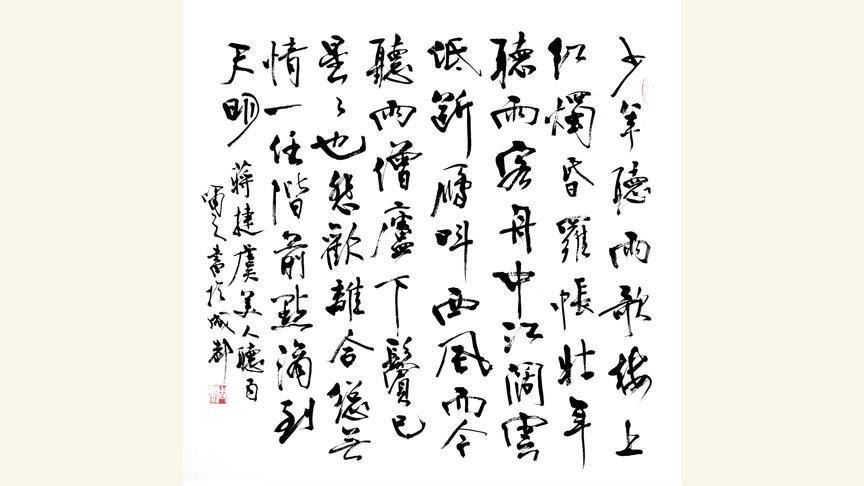 少年聽雨歌樓上
紅燭昏羅帳壯年
聽雨客舟中江闊雲
低斷鴈叫西風而今
聽雨僧廬下鬢已
星々也悲歡離合總無
情一任階前點滴到
天明
蔣捷虞美人聽雨
之書於成都